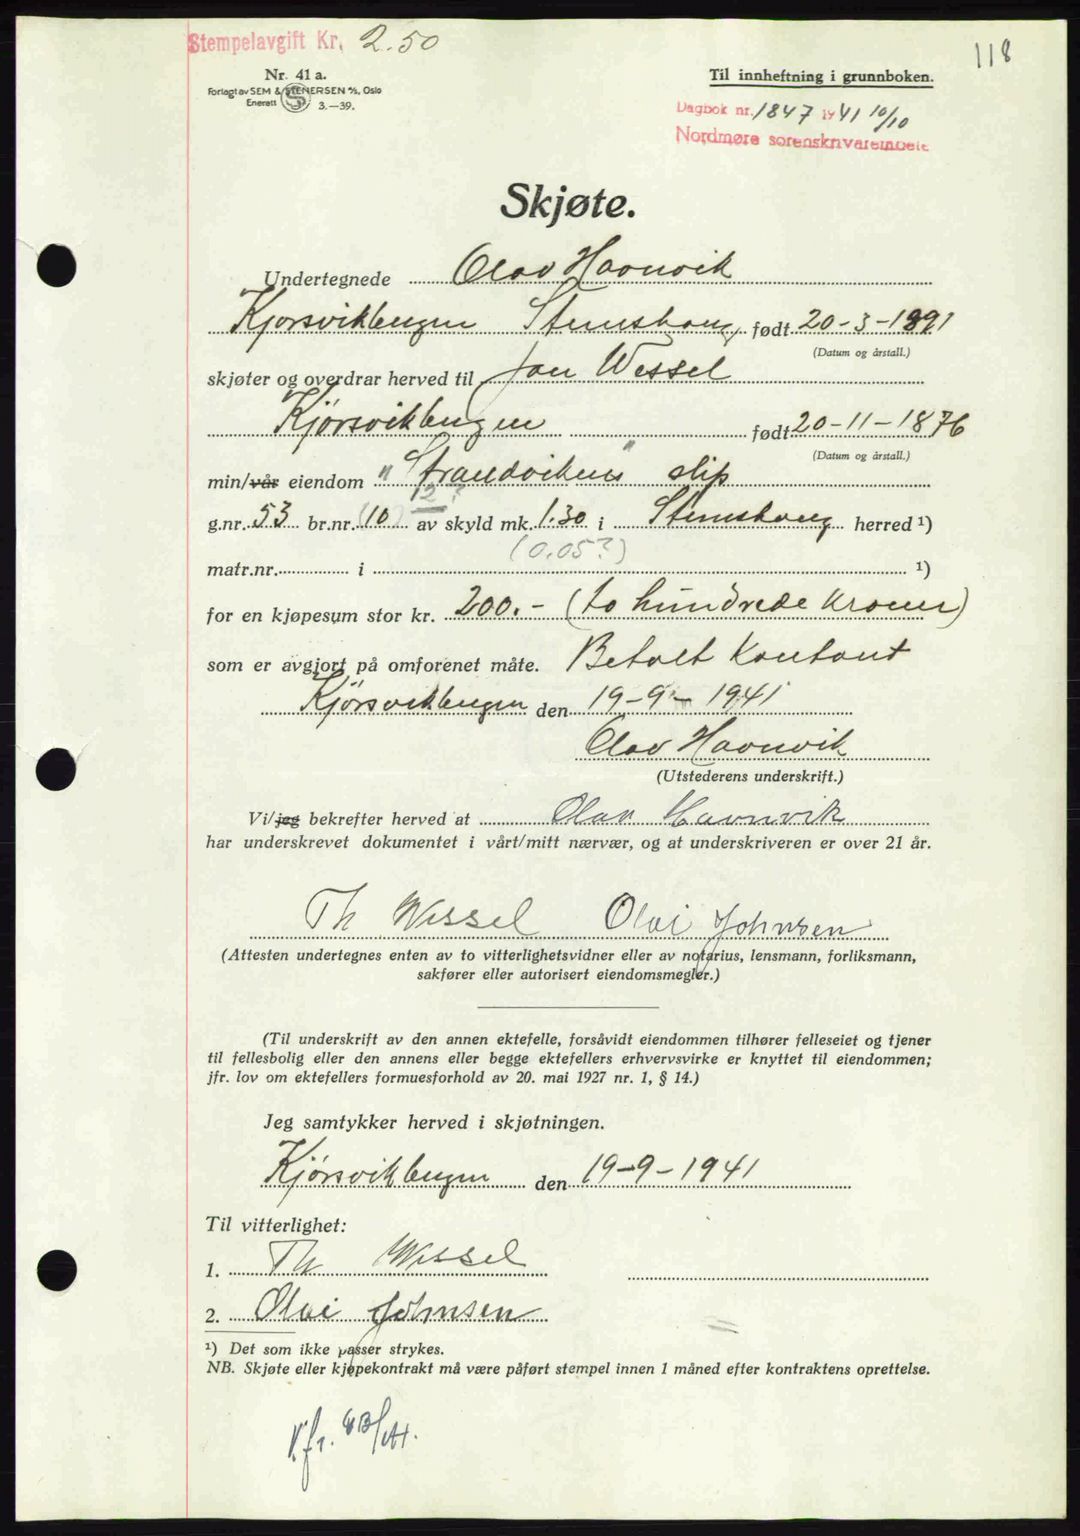 Stempelavgift Kr. 2.50
118
Nr. 41 a.
Forlagt av SEM & STENERSEN A/S, Oslo
Enerett S 3.—39.
Til innheftning i grunnboken.
Dagbok nr. 1847 1941 10/10
Nordmøre sorenskriverembete
Skjøte.
Undertegnede Olav Havnvik
Kjørsvikbugen Stemshaug født 20-3-1891
(Datum og årstall.)
skjøter og overdrar herved til Jon Wessel
Kjørsvikbugen født 20-11-1876
(Datum og årstall.)
min/vår eiendom "Strandvikens" slip
12?
g.nr. 53 br.nr. (10) av skyld mk. 1.30 i Stemshaug herred ¹)
(0.05?)
matr.nr. i ¹)
for en kjøpesum stor kr. 200.- (to hundrede kroner)
som er avgjort på omforenet måte. Betalt kontant
Kjørsvikbugen den 19-9-1941
Olav Havnvik
(Utstederens underskrift.)
Vi/jeg bekrefter herved at Olav Havnvik
har underskrevet dokumentet i vårt/mitt nærvær, og at underskriveren er over 21 år.
Th Wessel Olai Johnsen
(Attesten undertegnes enten av to vitterlighetsvidner eller av notarius, lensmann, forliksmann,
sakfører eller autorisert eiendomsmegler.)
(Til underskrift av den annen ektefelle, forsåvidt eiendommen tilhører felleseiet og tjener
til fellesbolig eller den annens eller begge ektefellers erhvervsvirke er knyttet til eiendommen;
jfr. lov om ektefellers formuesforhold av 20. mai 1927 nr. 1, § 14.)
Jeg samtykker herved i skjøtningen.
Kjørsvikbugen den 19-9-1941
Til vitterlighet:
1. Th Wessel
2. Olai Johnsen
¹) Det som ikke passer strykes.
NB. Skjøte eller kjøpekontrakt må være påført stempel innen 1 måned efter kontraktens oprettelse.